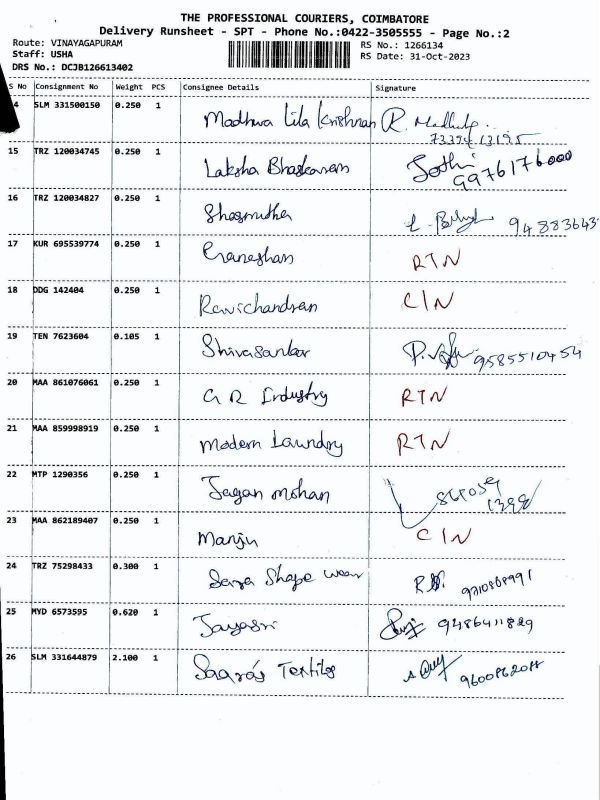 THE PROFESSIONAL COURIERS, COIMBATORE
Delivery Runsheet - SPT - Phone No.:0422-3505555 - Page No.:2
Route: VINAYAGAPURAM
Staff: USHA
DRS No.: DCJB126613402
RS No.: 1266134
RS Date: 31-Oct-2023
S No Consignment No Weight PCS Consignee Details Signature
4 SLM 331500150 0.250 1 Madhwa Lila Krishnan R.
15 TRZ 120034745 0.250 1 Laksha Bhaskaran Jothi
9976176000
16 TRZ 120034827 0.250 1
17 KUR 695539774 0.250 1 Ganeshan RTN
18 DDG 142404 0.250 1 Ravichandran CIN
19 TEN 7623604 0.105 1 Shivasankar 9585510454
20 MAA 861076061 0.250 1 G R Industry RTN
21 MAA 859998919 0.250 1 Modern Laundry RTN
22 MTP 1290356 0.250 1 Jagan mohan
23 MAA 862189407 0.250 1 Manju CIN
24 TRZ 75298433 0.300 1 Shape wear
25 MYD 6573595 0.620 1 Jayasri 9486411829
26 SLM 331644879 2.100 1 Textiles